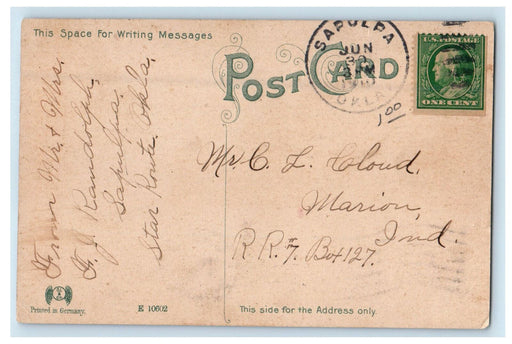 This Space For Writing Messages
POST CARD
SAPULPA
JUN
30
OKLA.
U.S. POSTAGE
ONE CENT
1.00
From Mr & Mrs.
F. J. Randolph
Sapulpa
Star Route. Okla.
Mr. C. L. Cloud.
Marion,
Ind.
R.R. 7. Box 127.
Printed in Germany.
E 10602
This side for the Address only.